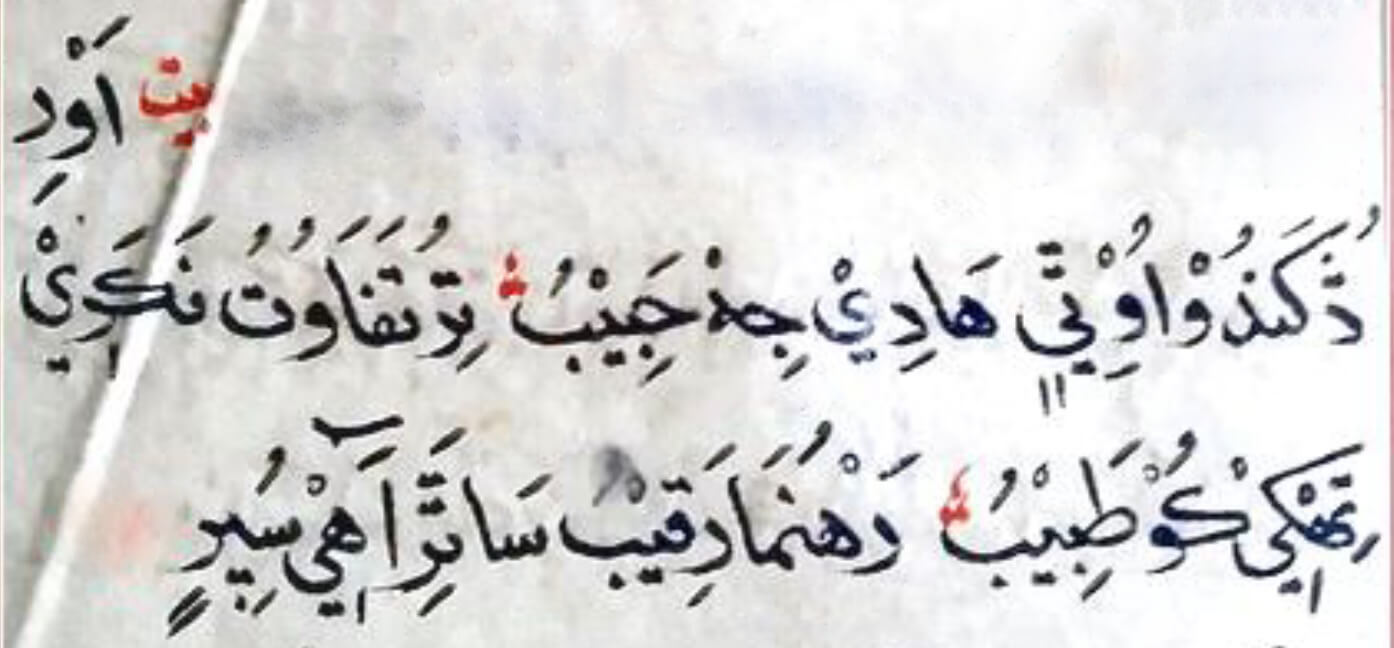 بيت اَوْد
ڎُکَندُوْا وُتِي هَادِيْ جِهْ حَبِيْبُ تِرُ تَفَاوُتُ نَکَرِيْ
تِهْکِي کُوْ طَبِيْبُ رَهْنُمَا رَقِيْبْ سَاتَرِّ آهِيْ سُپِرٍ